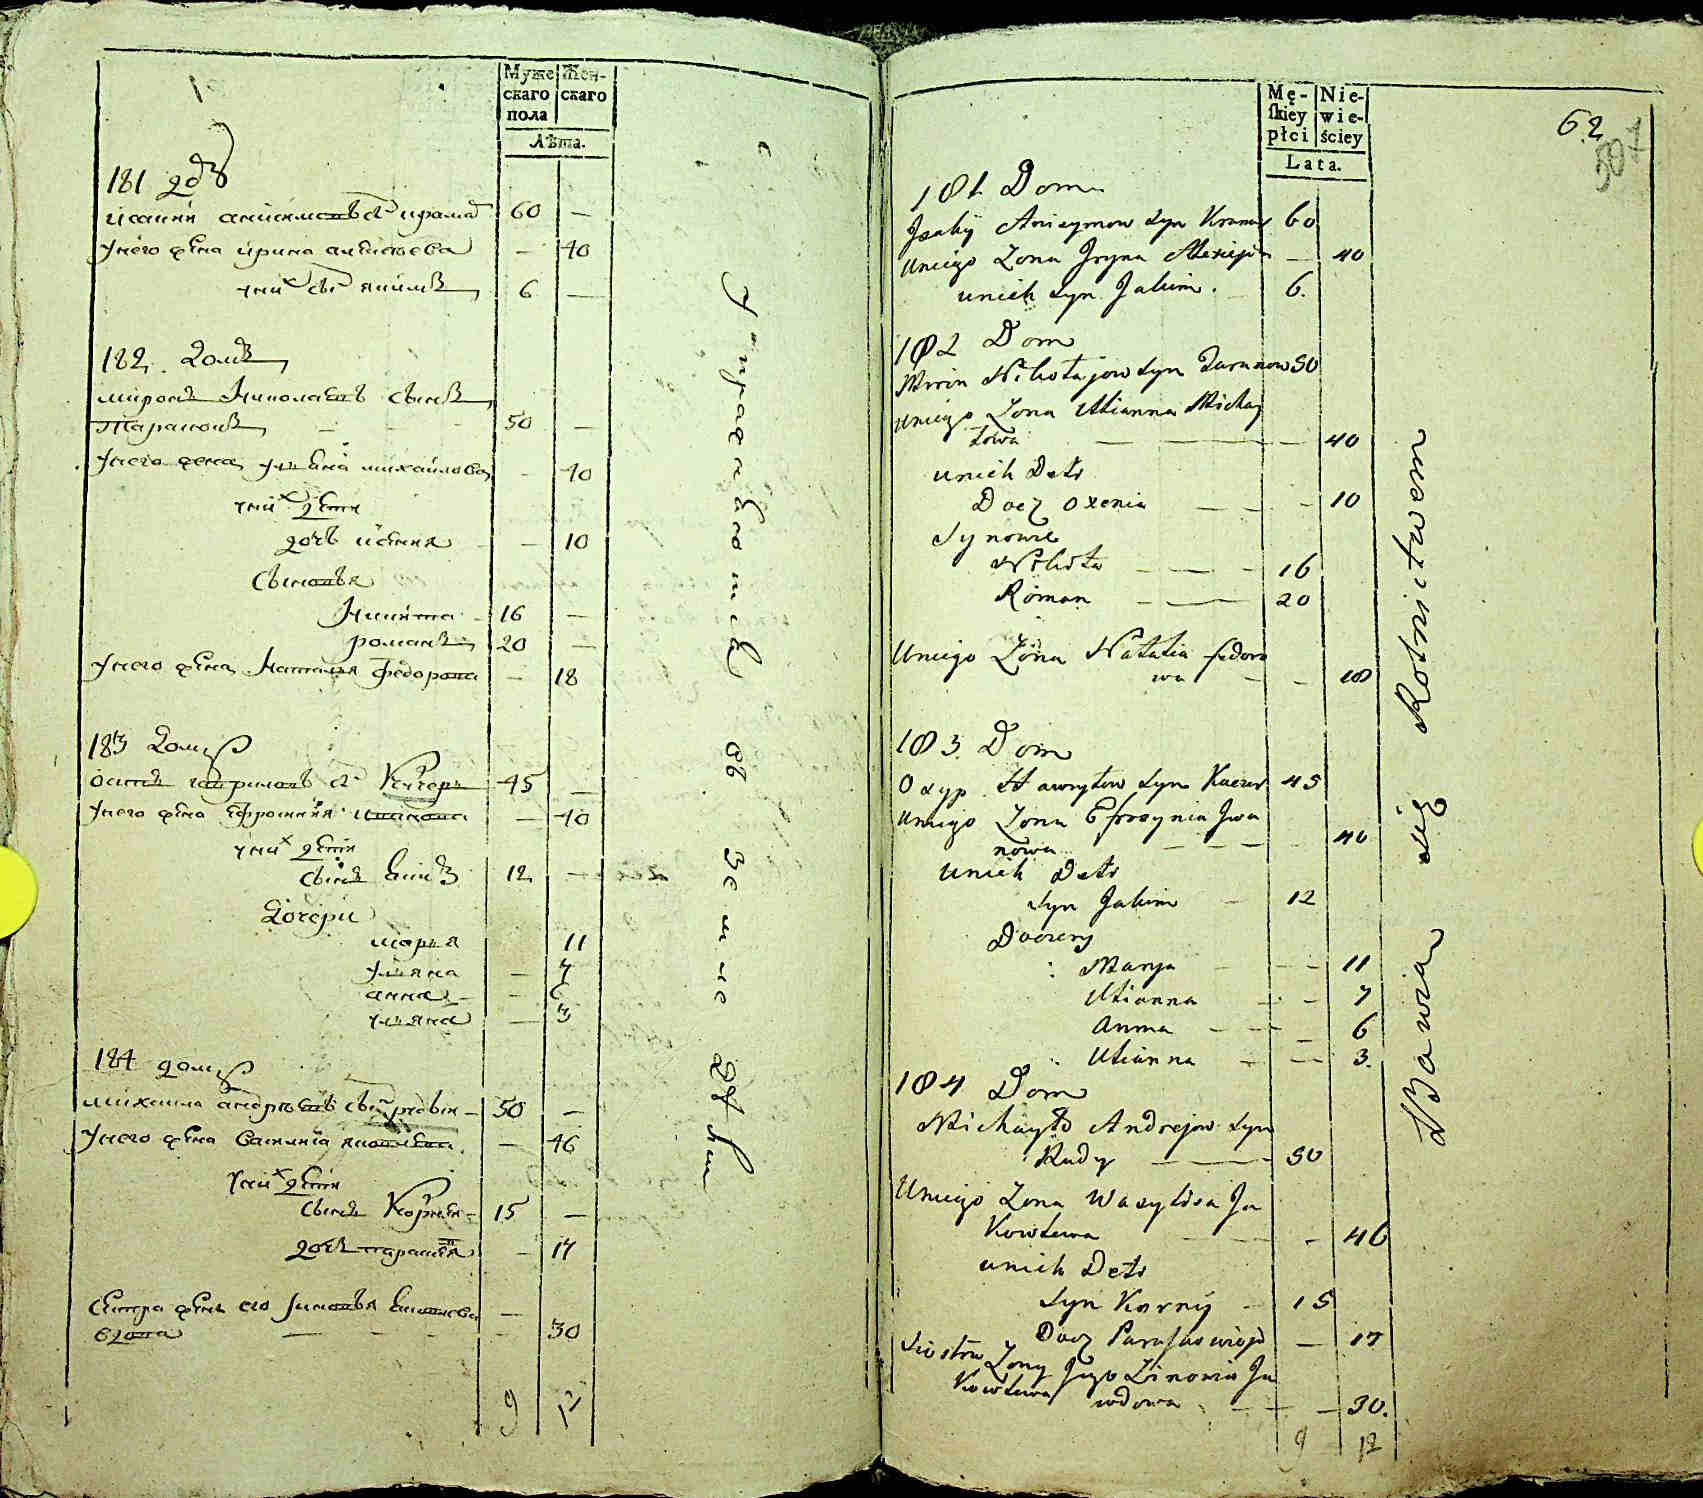 Муже Жен-
скаго скаго
пола
Лѣта.
181 домъ
60 —
Унего жена ирина — 40
унихъ снъ якимъ 6 —
182 домъ
миронъ Николаевъ сынъ
Тарановъ 50 —
Унего жена ульяна михайлова — 40
унихъ дети
дочь — 10
Сыновья
Никита 16 —
романъ 20 —
Унего жена Наталья Федорова — 18
183 домъ
осипъ гавриловъ снъ Кучеръ 45 —
Унего жена Ефросинья иванова — 40
унихъ дети
сынъ Якимъ 12 —
Дочери
марья 11
ульяна — 7
анна — 6
ульяна — 3
184 домъ
михаила андреевъ снъ 50 —
Унего жена василиса яковлева — 46
Унихъ дети
сынъ Корней 15 —
дочь — 17
Сестра жены его Зиновья Яковлева —
вдова — 30
9 12
Упражняются въ земледѣліи
62
507
Mę- Nie-
skiey wie-
płci ściey
Lata.
181 Dom
Izakij Anisymow syn 60
Uniego Zona Iryna — 40
unich syn Jakim. 6.
182 Dom
Miron Nikołajow syn Taranow 50
uniego Zona Ulianna Michay
łowa — 40
unich Deti
Docz Oxenia — 10
Synowie
Nikita — 16
Roman — 20
Uniego Zona Natalia fedoro
wa — 18
183 Dom
Osyp Hawryłow syn Kuczer 45
Uniego Zona Efrosynia Iwa
nowa — 40
unich Deti
Syn Jakim — 12
Doczery
Marya — 11
Ulianna — 7
Anna — 6
Ulianna — 3.
184 Dom
Michayło Andrejow syn
Rudy — 50
Uniego Zona Wasylisa Ja
kowlewa — 46
unich Deti
Syn Korniy — 15
Docz — 17
Siostra Zony Jego Zinowia Ja
kowlewa wdowa — 30.
9 12
Bawia się Rolnictwem